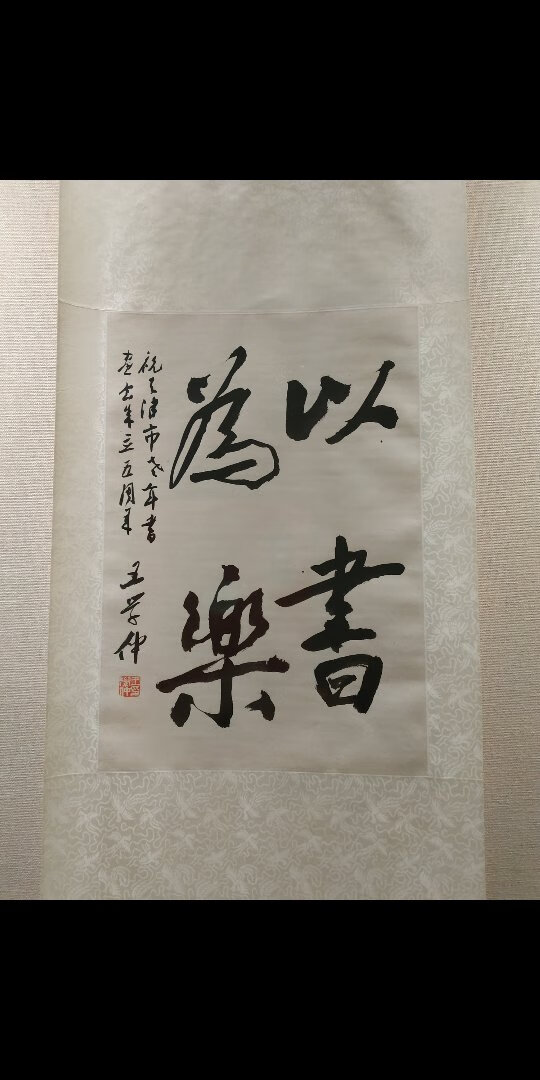 以書
為樂
祝天津市老年書
畫士成立五周年
王学仲